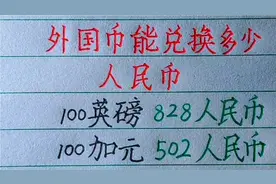 外国币能兑换多少
人民币
100英磅 828人民币
100加元 502人民币